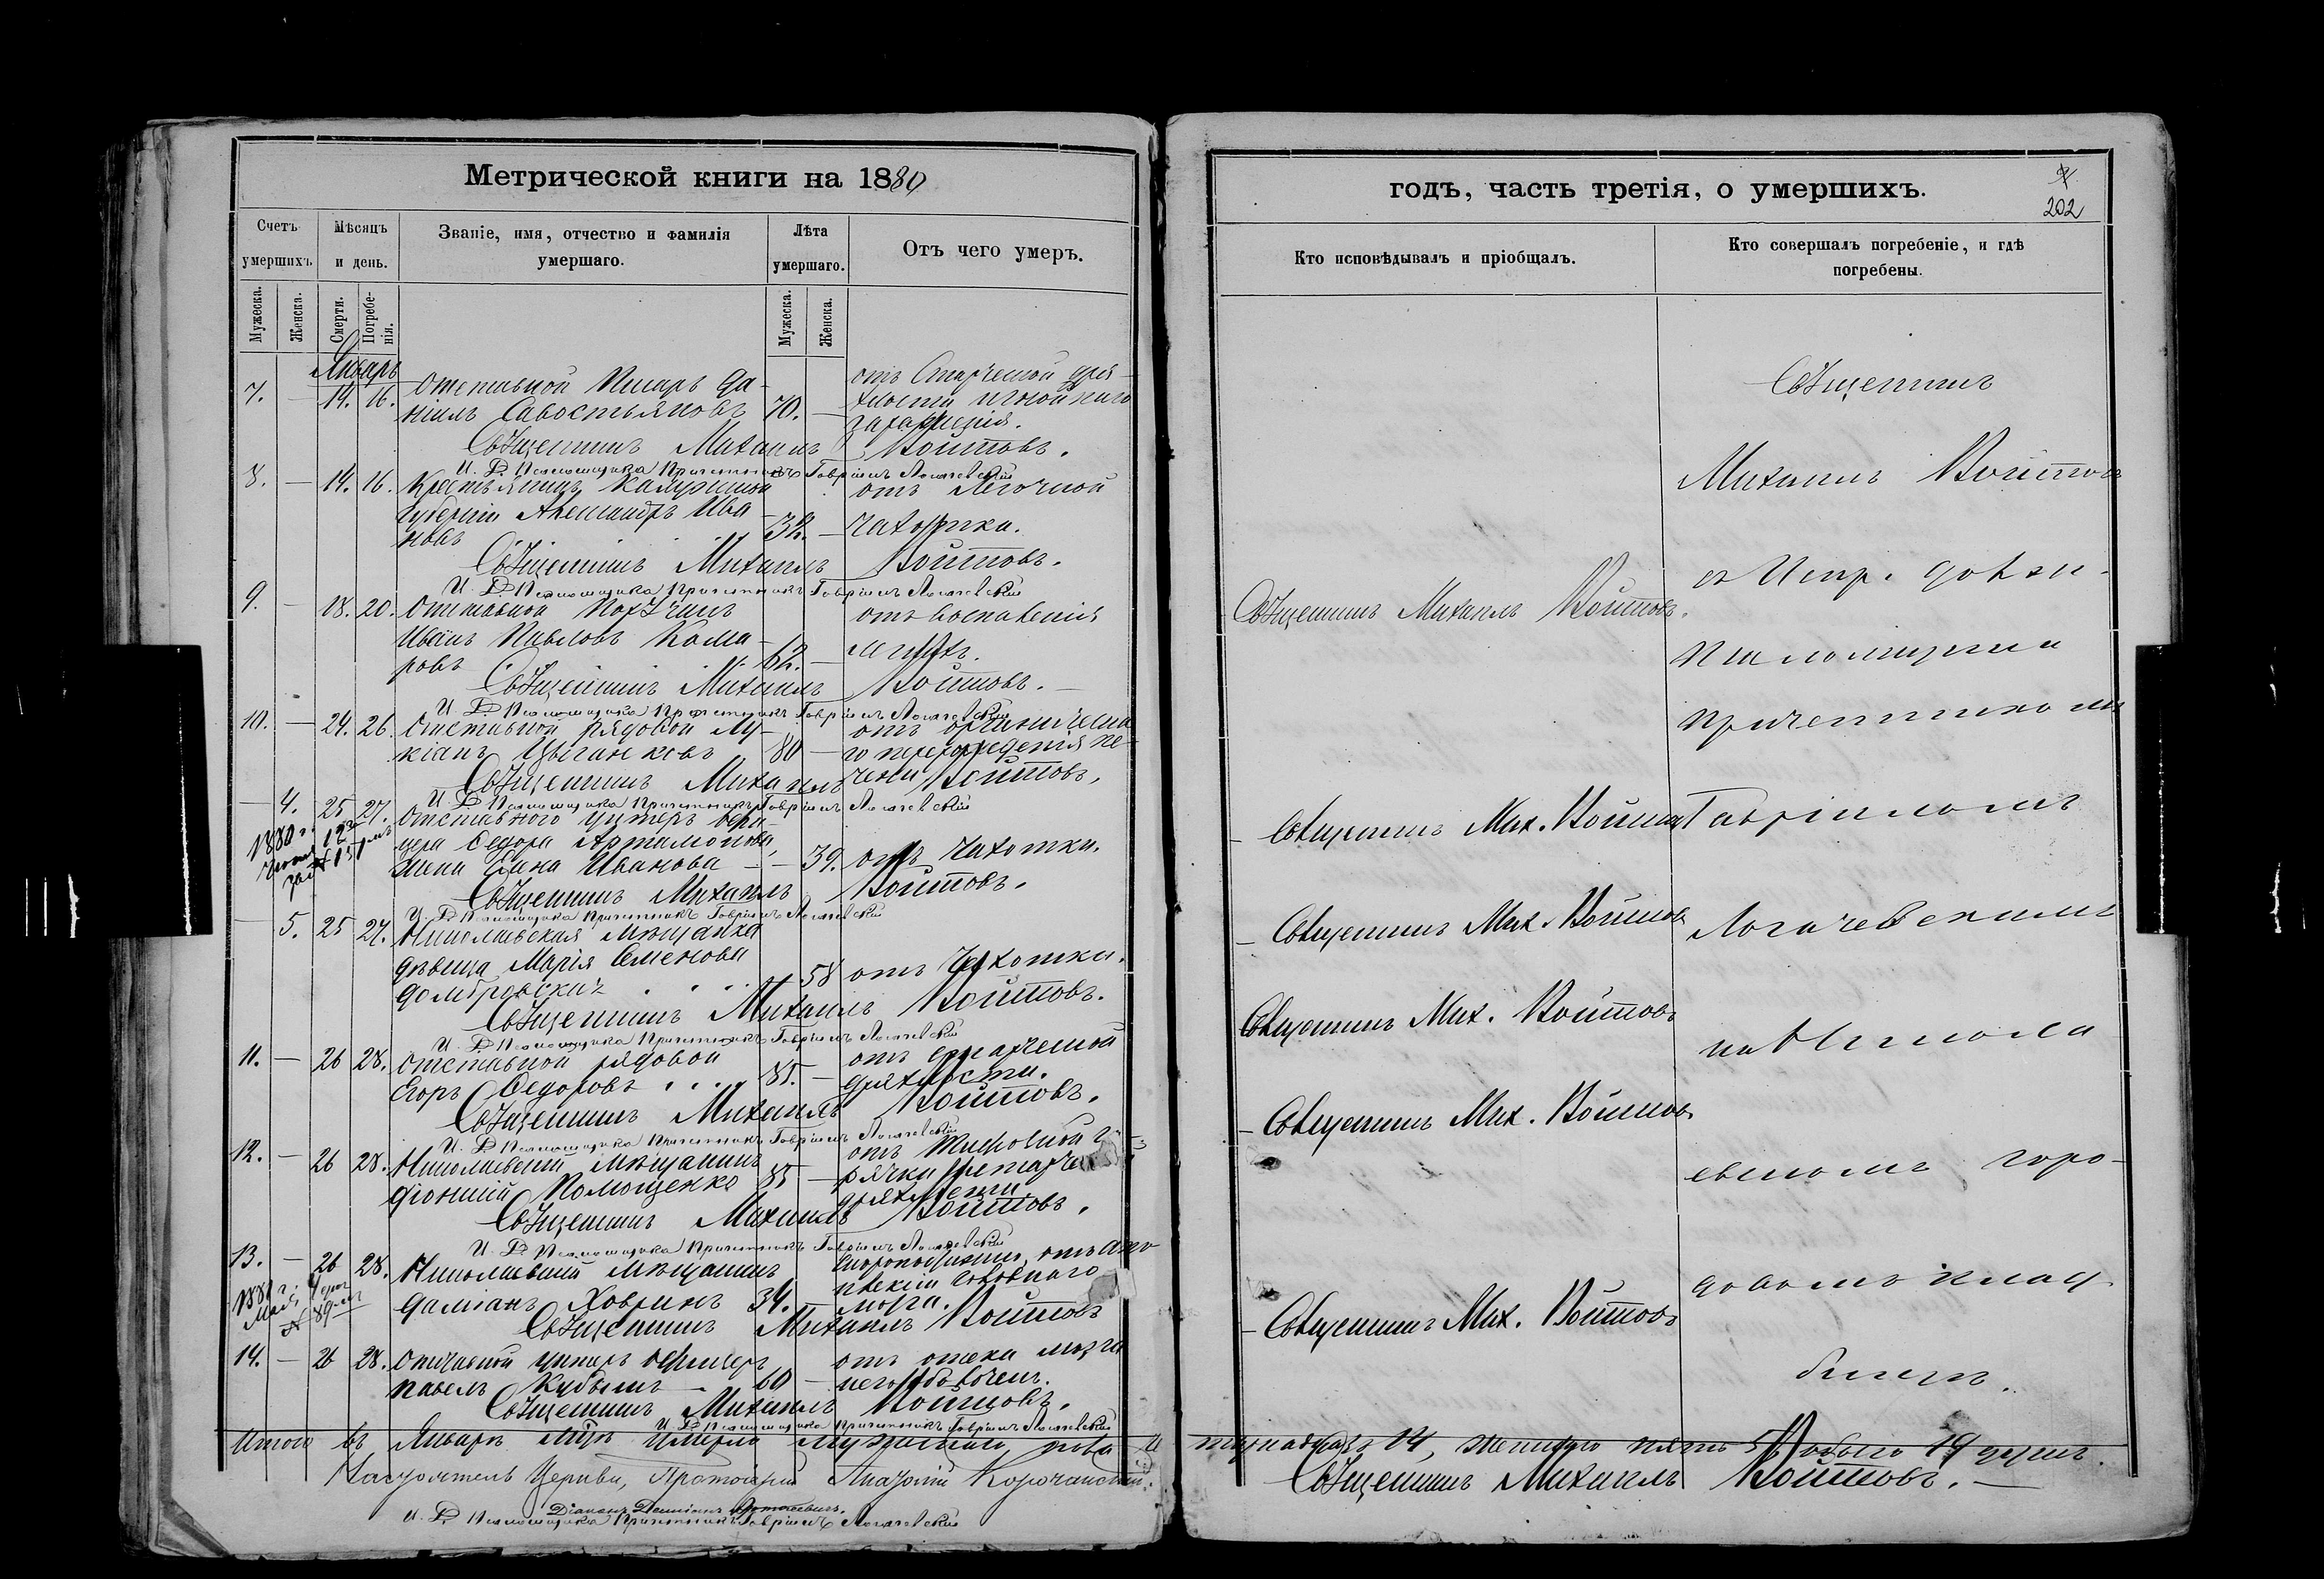 Метрической книги на 1880
Счетъ умершихъ
Мѣсяцъ и день.
Званіе, имя, отчество и фамилія умершаго.
Лѣта умершаго.
Отъ чего умеръ.
Мужеска.
Женска.
Смерти.
Погребе-
нія.
Мужеска.
Женска.
Январь
7. — 14. 16. Отставной Писарь Да-
ніилъ Савостьяновъ 70. —
отъ Старческой дря-
хлости
Священникъ Михаилъ Войтовъ.
И. Д. Псаломщика Причетникъ Гавріилъ Логачевскій
8. — 14. 16. Крестьянинъ Калужской
губерніи Александръ Ива-
новъ 32. —
отъ легочной
чахотки.
Священникъ Михаилъ Войтовъ.
И. Д. Псаломщика Причетникъ Гавріилъ Логачевскій
9. — 18. 20. Отставной Поручикъ
Иванъ Павловъ Кома-
ровъ 62. —
отъ воспаленія
Священникъ Михаилъ Войтовъ. —
И. Д. Псаломщика Причетникъ Гавріилъ Логачевскій
10. — 24. 26. Отставной рядовой Лу-
кіанъ Цыганковъ 80 —
отъ органическа-
го перерожденія пе-
чени
Священникъ Михаилъ Войтовъ.
И. Д. Псаломщика Причетникъ Гавріилъ Логачевскій
— 4. 25 27. Отставного унтеръ офи-
цера Федора Артамонова,
жена Анна Иванова — — 39. отъ чахотки.
1880 г.
Священникъ Михаилъ Войтовъ.
И. Д. Псаломщика Причетникъ Гавріилъ Логачевскій
— 5. 25 27. Николаевская мѣщанка
дѣвица Марія Семенова
Домбровская . . . . 58 отъ чахотки.
Священникъ Михаилъ Войтовъ.
И. Д. Псаломщика Причетникъ Гавріилъ Логачевскій
11. — 26 28. Отставной рядовой
Егоръ Федоровъ . . . . 85. —
отъ старческой
дряхлости.
Священникъ Михаилъ Войтовъ.
И. Д. Псаломщика Причетникъ Гавріилъ Логачевскій
12. — 26 28. Николаевскій мѣщанинъ
Діонисій Помощенко 85 —
отъ тифозной го-
рячки
дряхлости
Священникъ Михаилъ Войтовъ.
И. Д. Псаломщика Причетникъ Гавріилъ Логачевскій
13. — 26 28. Николаевскій мѣщанинъ
Даміанъ Ховринъ 34.
Скоропостижно, отъ апо-
плексіи головнаго
мозга.
Священникъ Михаилъ Войтовъ
14. — 26 28. Отставной унтеръ офицеръ
Павелъ Кубышъ — 60 —
отъ отека мозга
Священникъ Михаилъ Войтовъ.
И. Д. Псаломщика Причетникъ Гавріилъ Логачевскій
Итого въ Январѣ м-цѣ умерло мужескаго пола
Настоятель Церкви, Протоіерей Анатолій Корчинскій.
И. Д. Псаломщика Причетникъ Гавріилъ Логачевскій
годъ, часть третія, о умершихъ.
202
Кто исповѣдывалъ и пріобщалъ.
Кто совершалъ погребеніе, и гдѣ
погребены.
Священникъ
Михаилъ Войтовъ
Священникъ Михаилъ Войтовъ.
съ Испр. должн.
Псаломщика
Причетникомъ
— Священникъ Мих. Войтовъ
Гавріиломъ
— Священникъ Мих. Войтовъ
Логачевскимъ
Священникъ Мих. Войтовъ
на Никола-
— Священникъ Мих. Войтовъ
евскомъ горо-
довомъ клад-
— Священникъ Мих. Войтовъ
бищѣ.
14, женскаго пять 5, обоего 19 душъ.
Священникъ Михаилъ Войтовъ. —